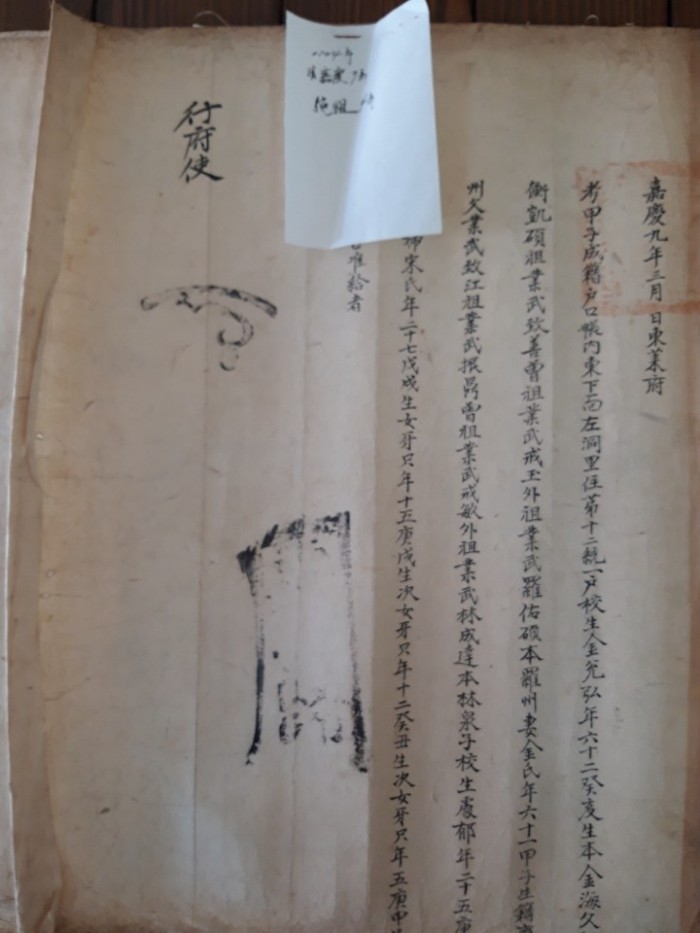 嘉慶九年三月 日東萊府
考甲子成籍戶口帳內東下面左洞里住第十二統一戶校生金允弘年六十二癸亥生本金海父
衡凱碩祖業武致善曾祖業武戒玉外祖業武羅佑碩本羅州妻金氏年六十一甲子生籍
州父業武致江祖業武振昌曾祖業武戒敏外祖業武林成達本林泉子校生處郁年二十五庚
宋氏年二十七戊戌生女牙只年十五庚戌生次女牙只年十二癸丑生次女牙只年五庚申
准給者
行府使